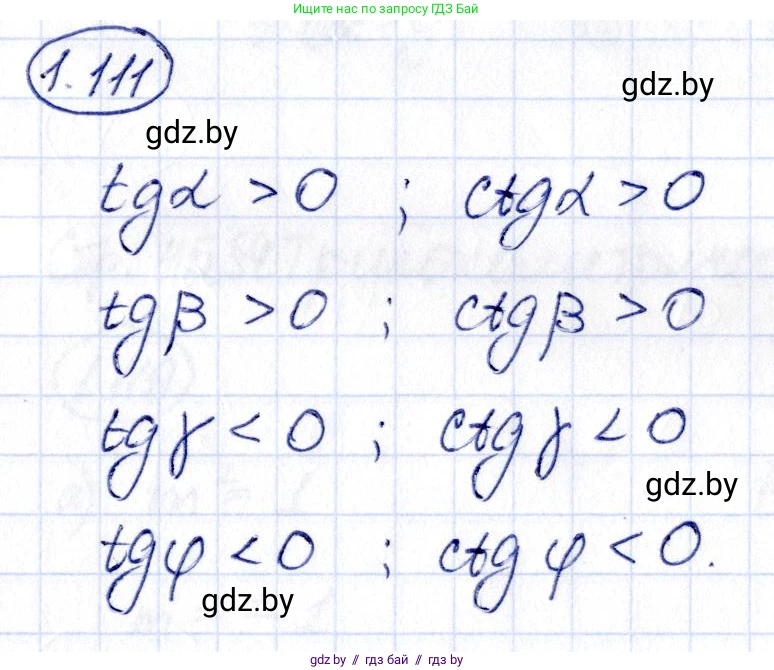 Ищите нас по запросу ГДЗ Бай
1.111
gdz.by
gdz.by
tgα > 0 ; ctgα > 0
tgβ > 0 ; ctgβ > 0
tgγ < 0 ; ctgγ < 0
gdz.by
tgφ < 0 ; ctgφ < 0.
gdz.by
gdz.by // гдз бай // gdz.by